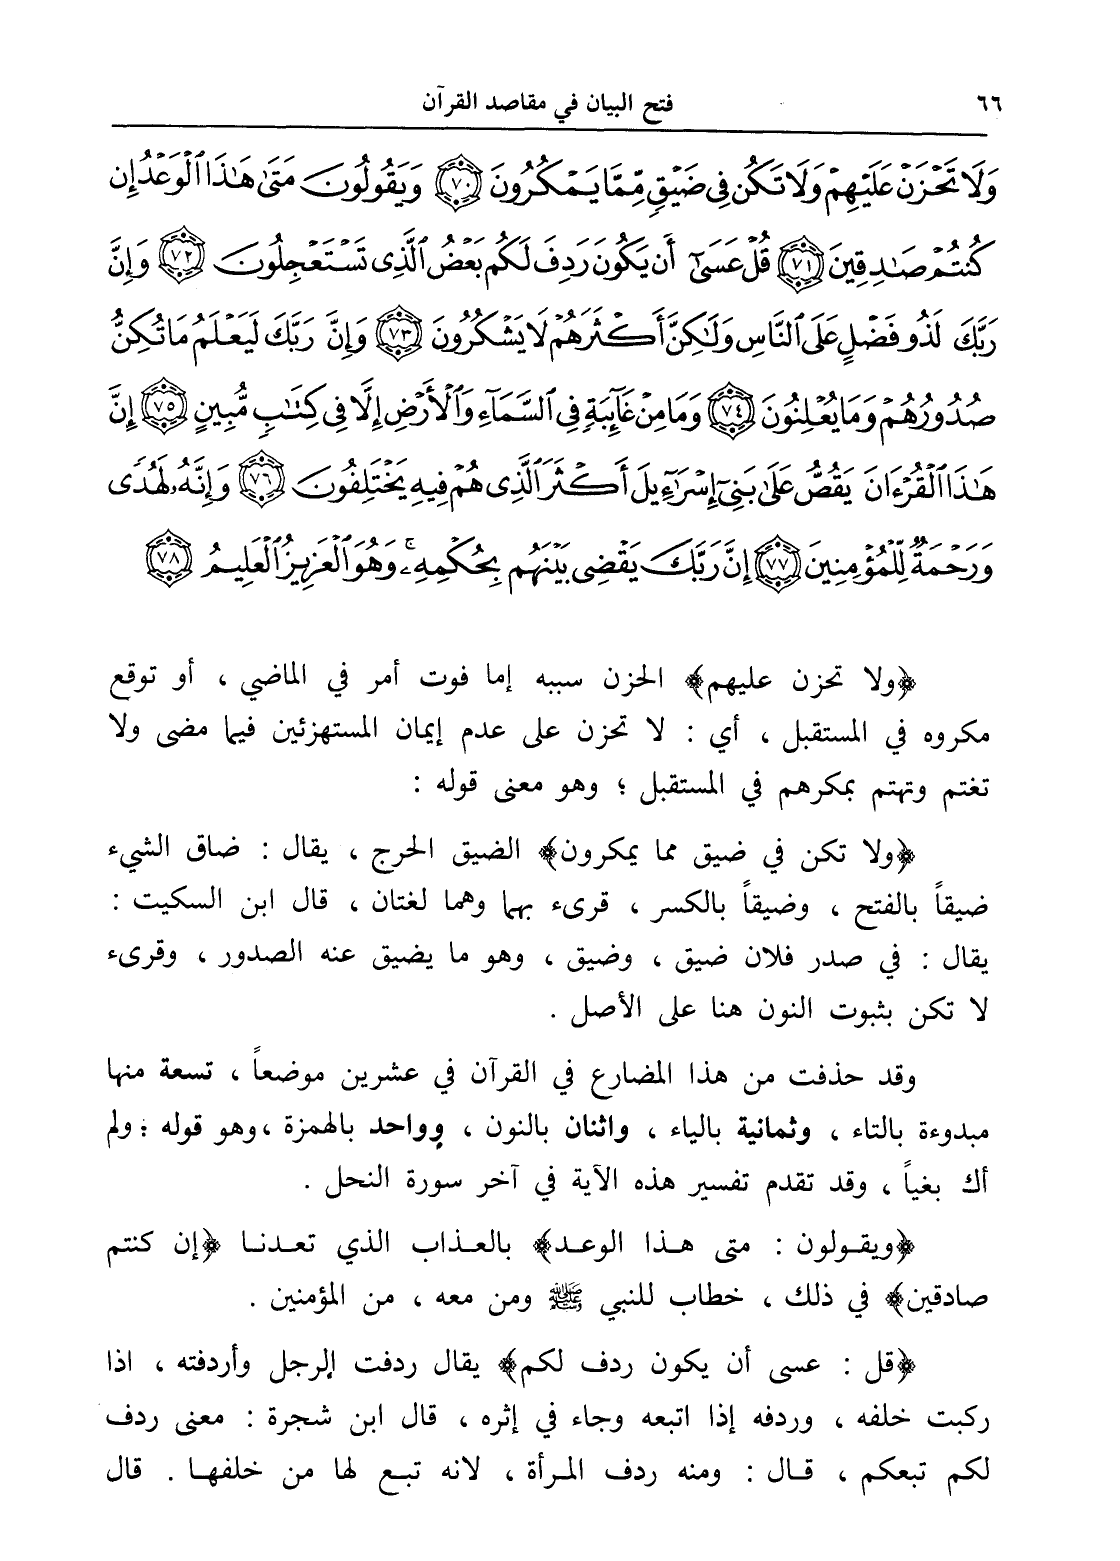 ٦٦ فتح البيان في مقاصد القرآن
وَلَا تَحْزَنْ عَلَيْهِمْ وَلَا تَكُن فِي ضَيْقٍ مِّمَّا يَمْكُرُونَ ﴿٧٠﴾ وَيَقُولُونَ مَتَىٰ هَٰذَا الْوَعْدُ إِن
كُنتُمْ صَادِقِينَ ﴿٧١﴾ قُلْ عَسَىٰٓ أَن يَكُونَ رَدِفَ لَكُم بَعْضُ الَّذِي تَسْتَعْجِلُونَ ﴿٧٢﴾ وَإِنَّ
رَبَّكَ لَذُو فَضْلٍ عَلَى النَّاسِ وَلَٰكِنَّ أَكْثَرَهُمْ لَا يَشْكُرُونَ ﴿٧٣﴾ وَإِنَّ رَبَّكَ لَيَعْلَمُ مَا تُكِنُّ
صُدُورُهُمْ وَمَا يُعْلِنُونَ ﴿٧٤﴾ وَمَا مِنْ غَآئِبَةٍ فِي السَّمَآءِ وَالْأَرْضِ إِلَّا فِي كِتَٰبٍ مُّبِينٍ ﴿٧٥﴾ إِنَّ
هَٰذَا الْقُرْءَانَ يَقُصُّ عَلَىٰ بَنِيٓ إِسْرَٰٓءِيلَ أَكْثَرَ الَّذِي هُمْ فِيهِ يَخْتَلِفُونَ ﴿٧٦﴾ وَإِنَّهُۥ لَهُدًى
وَرَحْمَةٌ لِّلْمُؤْمِنِينَ ﴿٧٧﴾ إِنَّ رَبَّكَ يَقْضِي بَيْنَهُم بِحُكْمِهِۦ ۚ وَهُوَ الْعَزِيزُ الْعَلِيمُ ﴿٧٨﴾
﴿ولا تحزن عليهم﴾ الحزن سببه إما فوت أمر في الماضي ، أو توقع
مكروه في المستقبل ، أي : لا تحزن على عدم إيمان المستهزئين فيما مضى ولا
تغتم وتهتم بمكرهم في المستقبل ؛ وهو معنى قوله :
﴿ولا تكن في ضيق مما يمكرون﴾ الضيق الحرج ، يقال : ضاق الشيء
ضيقاً بالفتح ، وضيقاً بالكسر ، قرىء بهما وهما لغتان ، قال ابن السكيت :
يقال : في صدر فلان ضيق ، وضيق ، وهو ما يضيق عنه الصدور ، وقرىء
لا تكن بثبوت النون هنا على الأصل .
وقد حذفت من هذا المضارع في القرآن في عشرين موضعاً ، تسعة منها
مبدوءة بالتاء ، وثمانية بالياء ، واثنان بالنون ، وواحد بالهمزة ، وهو قوله : ولم
أك بغياً ، وقد تقدم تفسير هذه الآية في آخر سورة النحل .
﴿ويقولون : متى هذا الوعد﴾ بالعذاب الذي تعدنا ﴿إن كنتم
صادقين﴾ في ذلك ، خطاب للنبي ﷺ ومن معه ، من المؤمنين .
﴿قل : عسى أن يكون ردف لكم﴾ يقال ردفت الرجل وأردفته ، اذا
ركبت خلفه ، وردفه إذا اتبعه وجاء في إثره ، قال ابن شجرة : معنى ردف
لكم تبعكم ، قال : ومنه ردف المرأة ، لانه تبع لها من خلفها . قال